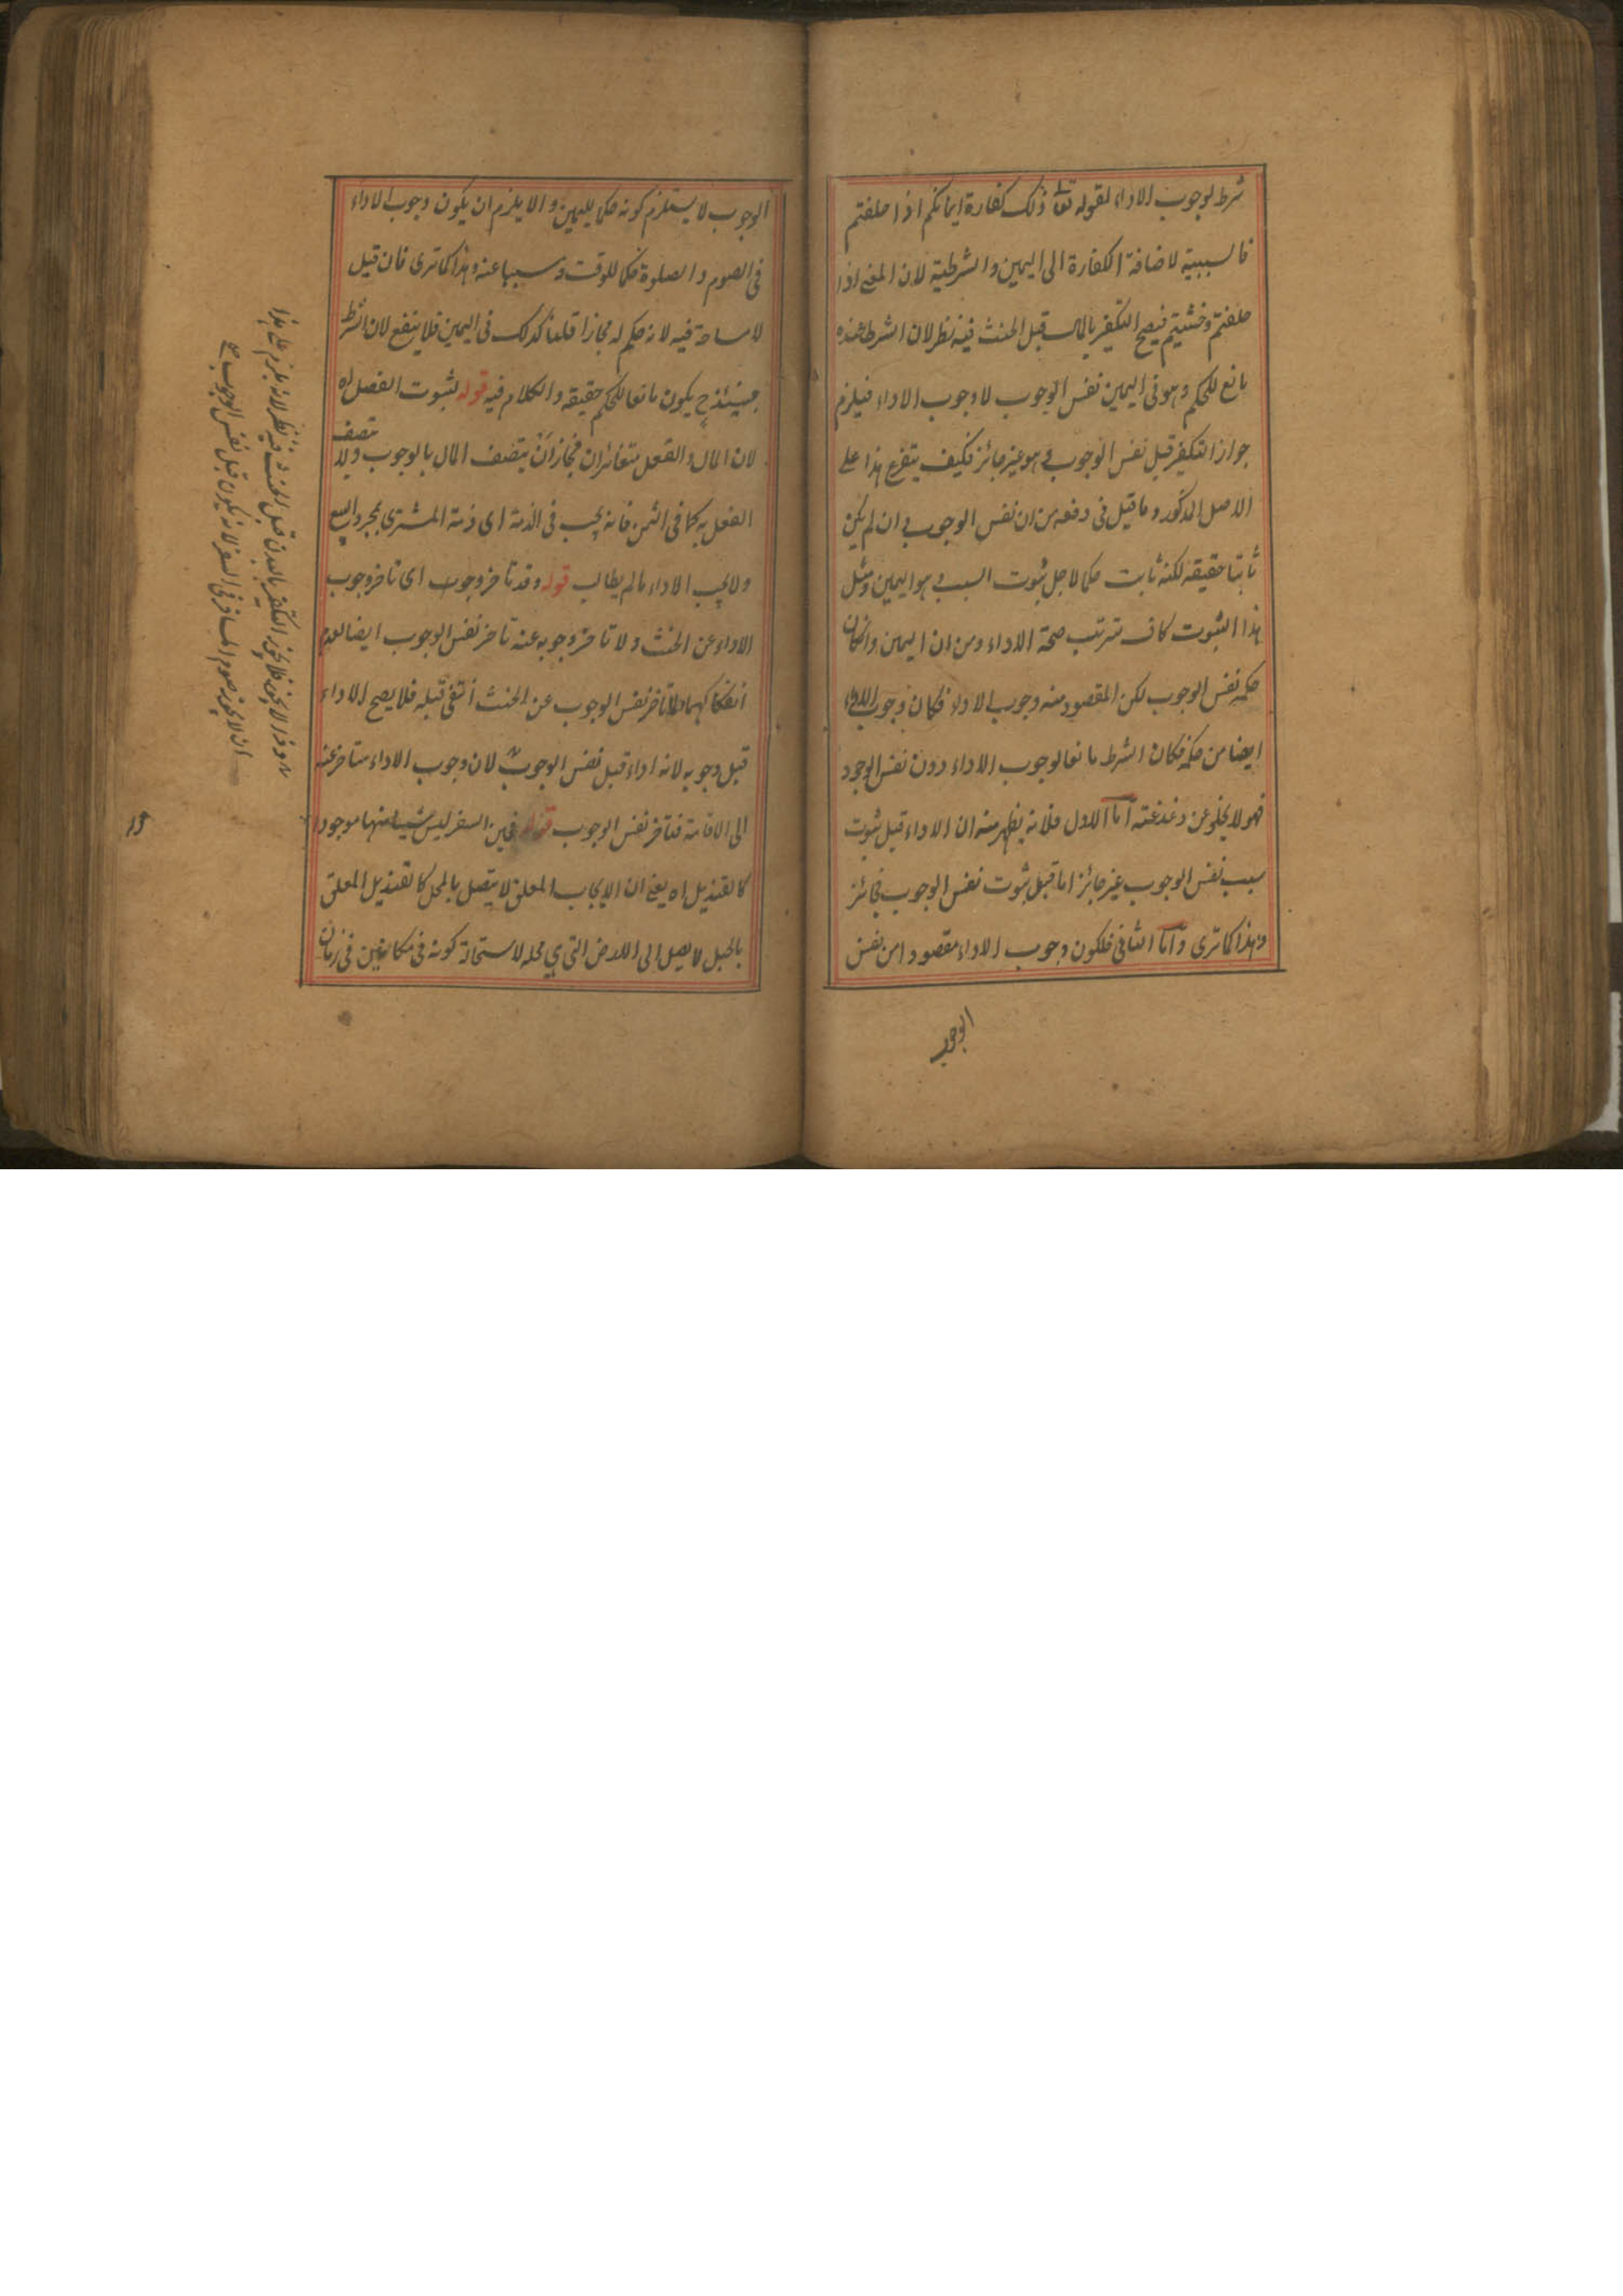 شرط لوجوب الاداء لقوله تعا ذلك كفارة ايمانكم اذا حلفتم
فالسببية لاضافة الكفارة الى اليمين والشرطية لان المعنى اذا
حلفتم وحنثتم فيصح التكفير بالمال قبل الحنث فيه نظر لان الشرط عنده
مانع للحكم وهو فى اليمين نفس الوجوب لا وجوب الاداء فيلزم
جواز التكفير قبل نفس الوجوب وهو غير جائز فكيف يتفرع هذا على
الاصل المذكور وما قيل فى دفعه من ان نفس الوجوب وان لم يكن
ثابتا حقيقة لكنه ثابت حكما لاجل ثبوت السبب وهو اليمين ومثل
هذا الثبوت كاف ترتب صحة الاداء ومن ان اليمين وانكان
حكمه نفس الوجوب لكن المقصود منه وجوب الاداء فكان وجوب الاداء
ايضا من حكمه فكان الشرط مانعا لوجوب الاداء دون نفس الوجود
فهو لا يخلو عن دغدغة اما الاول فلانه يظهر منه ان الاداء قبل ثبوت
سبب نفس الوجوب غير جائز اما قبل ثبوت نفس الوجوب فجائز
وهذا كما ترى واما الثانى فلكون وجوب الاداء مقصودا من نفس
الوجوب
الوجوب لا يستلزم كونه حكما لليمين والا يلزم ان يكون وجوب الاداء
فى الصوم والصلوة حكما للوقت ومسببا عنه وهذا كما ترى فان قيل
لا مسامحة فيه لانه حكم له مجازا قلنا كذلك فى اليمين فلا ينفع لان الشرط
حينئذ يكون مانعا للحكم حقيقة والكلام فيه قوله لثبوت الفصل اه
لان المال والفعل متغائران فجاز ان يتصف المال بالوجوب ولا
يتصف
الفعل به كما فى الثمن فانه يجب فى الذمة اى ذمة المشترى بمجرد البيع
ولا يجب الاداء ما لم يطالب قوله وقد تاخر وجوب اى تاخر وجوب
الاداء عن الحنث ولا تاخر وجوبه عنه تاخر نفس الوجوب ايضا لعدم
انفكاكهما ولما تاخر نفس الوجوب عن الحنث انتفى قبله فلا يصح الاداء
قبل وجوبه لانه اداء قبل نفس الوجوب لان وجوب الاداء متاخر عنه
الى الاقامة فتاخر نفس الوجوب قوله فحين السفر ليس شيا منها موجودا
كالقنديل اه يعنى ان الايجاب المعلق لا يتصل بالمحل كالقنديل المعلق
بالحبل لا يصل الى الارض التى هى محله لاستحالة كونه فى مكانين فى زمان
وهذا لا يجوز فلا يجوز التكفير بالبدن قبل الحنث فيه نظر لانه يلزم على هذا
ان لا يجوز صوم المسافر فى السفر لانه يكون قبل نفس الوجوب